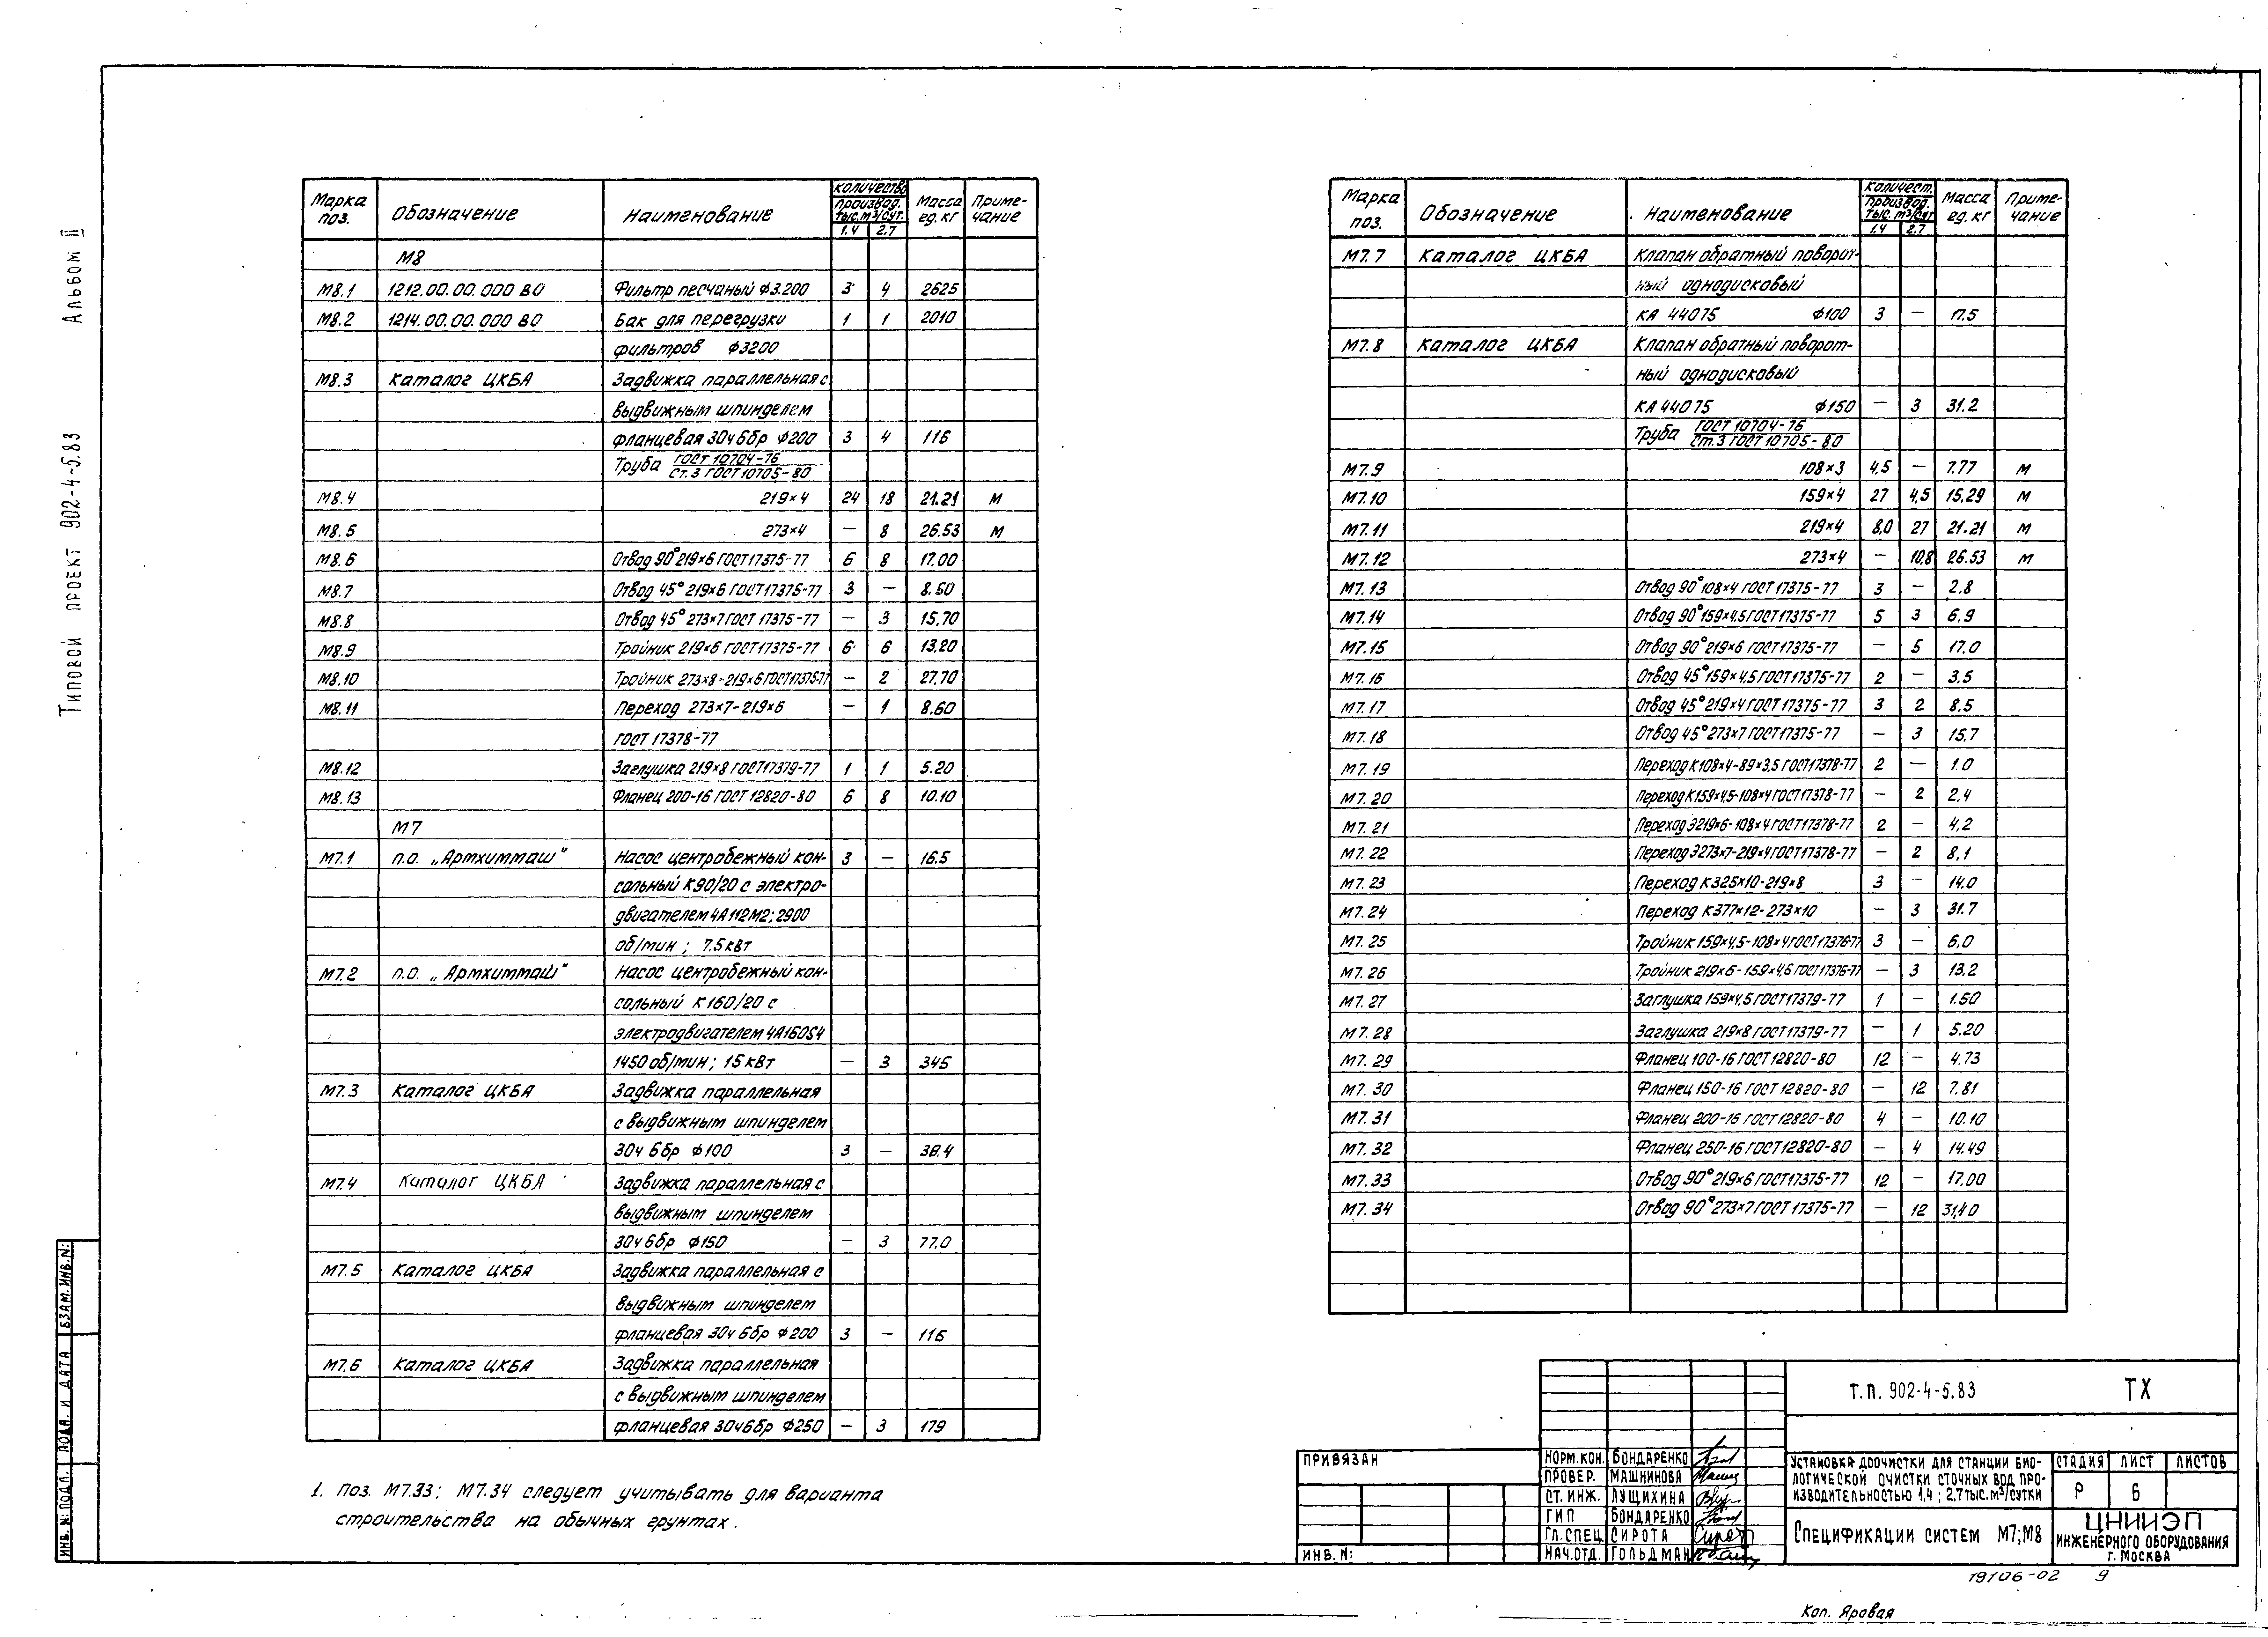 Типовой проект 902-4-5.83 Альбом II
Марка поз. Обозначение Наименование количество производ. тыс.м³/сут. 1.4 2.7 Масса ед.кг Приме-чание
М8
М8.1 1212.00.00.000 ВО Фильтр песчаный ф3.200 3 4 2625
М8.2 1214.00.00.000 ВО Бак для перегрузки 1 1 2010
фильтров ф3200
М8.3 Каталог ЦКБА Задвижка параллельная с
выдвижным шпинделем
фланцевая 30ч6бр ф200 3 4 116
Труба ГОСТ 10704-76 / Ст.3 ГОСТ 10705-80
М8.4 219×4 24 18 21.21 м
М8.5 273×4 — 8 26.53 м
М8.6 Отвод 90° 219×6 ГОСТ 17375-77 6 8 17.00
М8.7 Отвод 45° 219×6 ГОСТ 17375-77 3 — 8.50
М8.8 Отвод 45° 273×7 ГОСТ 17375-77 — 3 15,70
М8.9 Тройник 219×6 ГОСТ 17375-77 6 6 13.20
М8.10 Тройник 273×8-219×6 ГОСТ 17375-77 — 2 27.70
М8.11 Переход 273×7-219×6 — 1 8.60
ГОСТ 17378-77
М8.12 Заглушка 219×8 ГОСТ 17379-77 1 1 5.20
М8.13 Фланец 200-16 ГОСТ 12820-80 6 8 10.10
М7
М7.1 п.о. „Армхиммаш" Насос центробежный кон- 3 — 16.5
сольный К90/20 с электро-
двигателем 4А112М2; 2900
об/мин; 7.5 квт
М7.2 п.о. „Армхиммаш" Насос центробежный кон-
сольный К160/20 с
электродвигателем 4А160S4
1450 об/мин; 15 квт — 3 345
М7.3 Каталог ЦКБА Задвижка параллельная
с выдвижным шпинделем
30ч 6бр ф100 3 — 38.4
М7.4 Каталог ЦКБА Задвижка параллельная с
выдвижным шпинделем
30ч6бр ф150 — 3 77.0
М7.5 Каталог ЦКБА Задвижка параллельная с
выдвижным шпинделем
фланцевая 30ч 6бр ф200 3 — 116
М7.6 Каталог ЦКБА Задвижка параллельная
с выдвижным шпинделем
фланцевая 30ч6бр ф250 — 3 179
1. Поз. М7.33; М7.34 следует учитывать для варианта
строительства на обычных грунтах.
Марка поз. Обозначение Наименование Количест. производ. тыс. м³/сут 1.4 2.7 Масса ед.кг Приме-чание
М7.7 Каталог ЦКБА Клапан обратный поворот-
ный однодисковый
КА 44075 ф100 3 — 17.5
М7.8 Каталог ЦКБА Клапан обратный поворот-
ный однодисковый
КА 44075 ф150 — 3 31.2
Труба ГОСТ 10704-76 / Ст.3 ГОСТ 10705-80
М7.9 108×3 4,5 — 7.77 м
М7.10 159×4 27 4,5 15,29 м
М7.11 219×4 8,0 27 21.21 м
М7.12 273×4 — 10,8 26.53 м
М7.13 Отвод 90° 108×4 ГОСТ 17375-77 3 — 2.8
М7.14 Отвод 90° 159×4,5 ГОСТ 17375-77 5 3 6.9
М7.15 Отвод 90° 219×6 ГОСТ 17375-77 — 5 17.0
М7.16 Отвод 45° 159×4,5 ГОСТ 17375-77 2 — 3.5
М7.17 Отвод 45° 219×4 ГОСТ 17375-77 3 2 8,5
М7.18 Отвод 45° 273×7 ГОСТ 17375-77 — 3 15.7
М7.19 Переход К108×4-89×3,5 ГОСТ 17378-77 2 — 1.0
М7.20 Переход К159×4,5-108×4 ГОСТ 17378-77 — 2 2.4
М7.21 Переход Э219×6-108×4 ГОСТ 17378-77 2 — 4,2
М7.22 Переход Э273×7-219×4 ГОСТ 17378-77 — 2 8,1
М7.23 Переход К325×10-219×8 3 — 14.0
М7.24 Переход К377×12-273×10 — 3 31.7
М7.25 Тройник 159×4,5-108×4 ГОСТ 17376-77 3 — 6,0
М7.26 Тройник 219×6-159×4,5 ГОСТ 17376-77 — 3 13.2
М7.27 Заглушка 159×4,5 ГОСТ 17379-77 1 — 1.50
М7.28 Заглушка 219×8 ГОСТ 17379-77 — 1 5.20
М7.29 Фланец 100-16 ГОСТ 12820-80 12 — 4.73
М7.30 Фланец 150-16 ГОСТ 12820-80 — 12 7.81
М7.31 Фланец 200-16 ГОСТ 12820-80 4 — 10.10
М7.32 Фланец 250-16 ГОСТ 12820-80 — 4 14.49
М7.33 Отвод 90° 219×6 ГОСТ 17375-77 12 — 17.00
М7.34 Отвод 90° 273×7 ГОСТ 17375-77 — 12 31,40
Т.П. 902-4-5.83 ТХ
ПРИВЯЗАН
ИНВ. N:
НОРМ.КОН. БОНДАРЕНКО
ПРОВЕР. МАШНИНОВА
СТ. ИНЖ. ЛУЩИХИНА
ГИП БОНДАРЕНКО
ГЛ.СПЕЦ. СИРОТА
НАЧ.ОТД. ГОЛЬДМАН
УСТАНОВКА ДООЧИСТКИ ДЛЯ СТАНЦИИ БИО-
ЛОГИЧЕСКОЙ ОЧИСТКИ СТОЧНЫХ ВОД ПРО-
ИЗВОДИТЕЛЬНОСТЬЮ 1,4; 2,7 ТЫС. М³/СУТКИ
СТАДИЯ ЛИСТ ЛИСТОВ
Р 6
СПЕЦИФИКАЦИИ СИСТЕМ М7;М8
ЦНИИЭП
ИНЖЕНЕРНОГО ОБОРУДОВАНИЯ
г. МОСКВА
19106-02 9
Коп. Яровая
ИНВ. N: ПОДЛ. ПОДП. И ДАТА ВЗАМ.ИНВ.N: